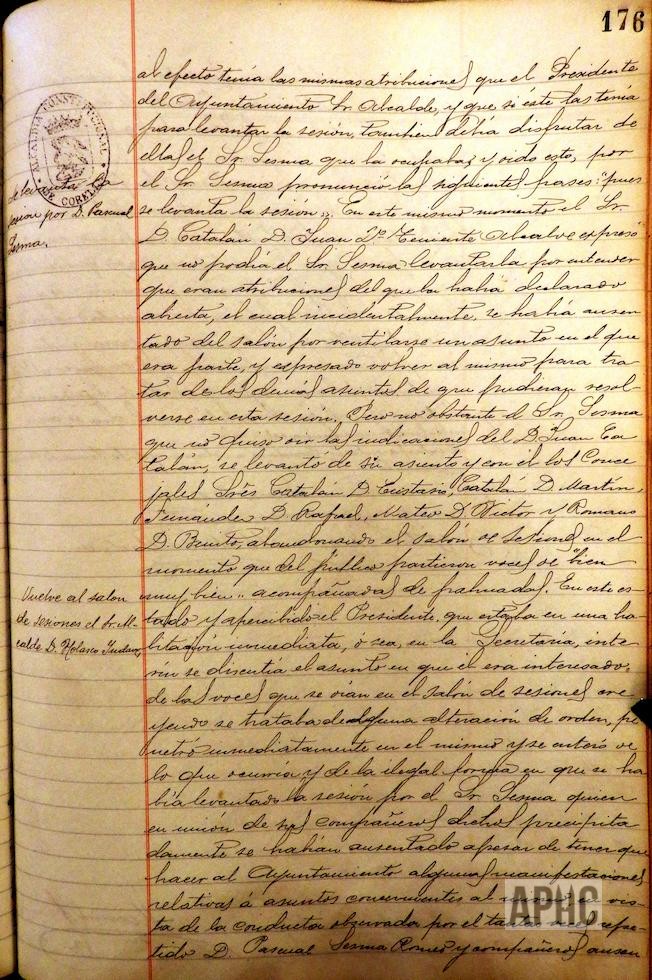 176
al efecto tenia las mismas atribuciones que el Presidente
del Ayuntamiento Sr. Alcalde, y que si éste las tenia
para levantar la sesión, tambien debia disfrutar de
ellas el Sr. Sesma que la ocupaba; y oido esto, por
el Sr. Sesma pronunció las siguientes frases: "pues
se levanta la sesión". En este mismo momento el Sr.
D. Catalán D. Juan 2º Teniente Alcalde expresó
que no podia el Sr. Sesma levantarla por entender
que eran atribuciones del que la habia declarado
abierta, el cual incidentalmente, se habia ausen
tado del salón por ventilarse un asunto en el que
era parte, y expresado volver al mismo para tra
tar de los demás asuntos de que pudieran resol
verse en esta sesión. Pero no obstante el Sr. Sesma
que no quiso oir las indicaciones del D. Juan Ca
talán, se levantó de su asiento y con él los Conce
jales Sres Catalán D. Eustasio, Catalán D. Martín,
Fernández D. Rafael, Mateo D. Victor y Romano
D. Benito, abandonando el salón de sesiones en el
momento que del público partieron voces de "bien
muy bien" acompañadas de palmadas. En este es
tado y apercibido el Presidente, que estaba en una ha
bitación inmediata, ó sea, en la Secretaría, inte
rin se discutia el asunto en que él era interesado,
de las voces que se oian en el salón de sesiones cre
yendo se trataba de alguna alteración de orden, pe
netró inmediatamente en el mismo y se enteró de
lo que ocurria y de la ilegal forma en que se ha
bia levantado la sesión por el Sr. Sesma quien
en unión de sus compañeros dichos precipita
damente se habian ausentado apesar de tener que
hacer al Ayuntamiento algunas manifestaciones
relativas á asuntos concernientes al mismo; en vis
ta de la conducta observada por el tantas veces repe
tido D. Pascual Sesma Romeo y compañeros ausen
ALCALDIA CONSTITUCIONAL
DE CORELLA
Se levanta la
sesion por D. Pascual
Sesma.
Vuelve al salon
de sesiones el Sr. Al-
calde D. Nolasco
APHC